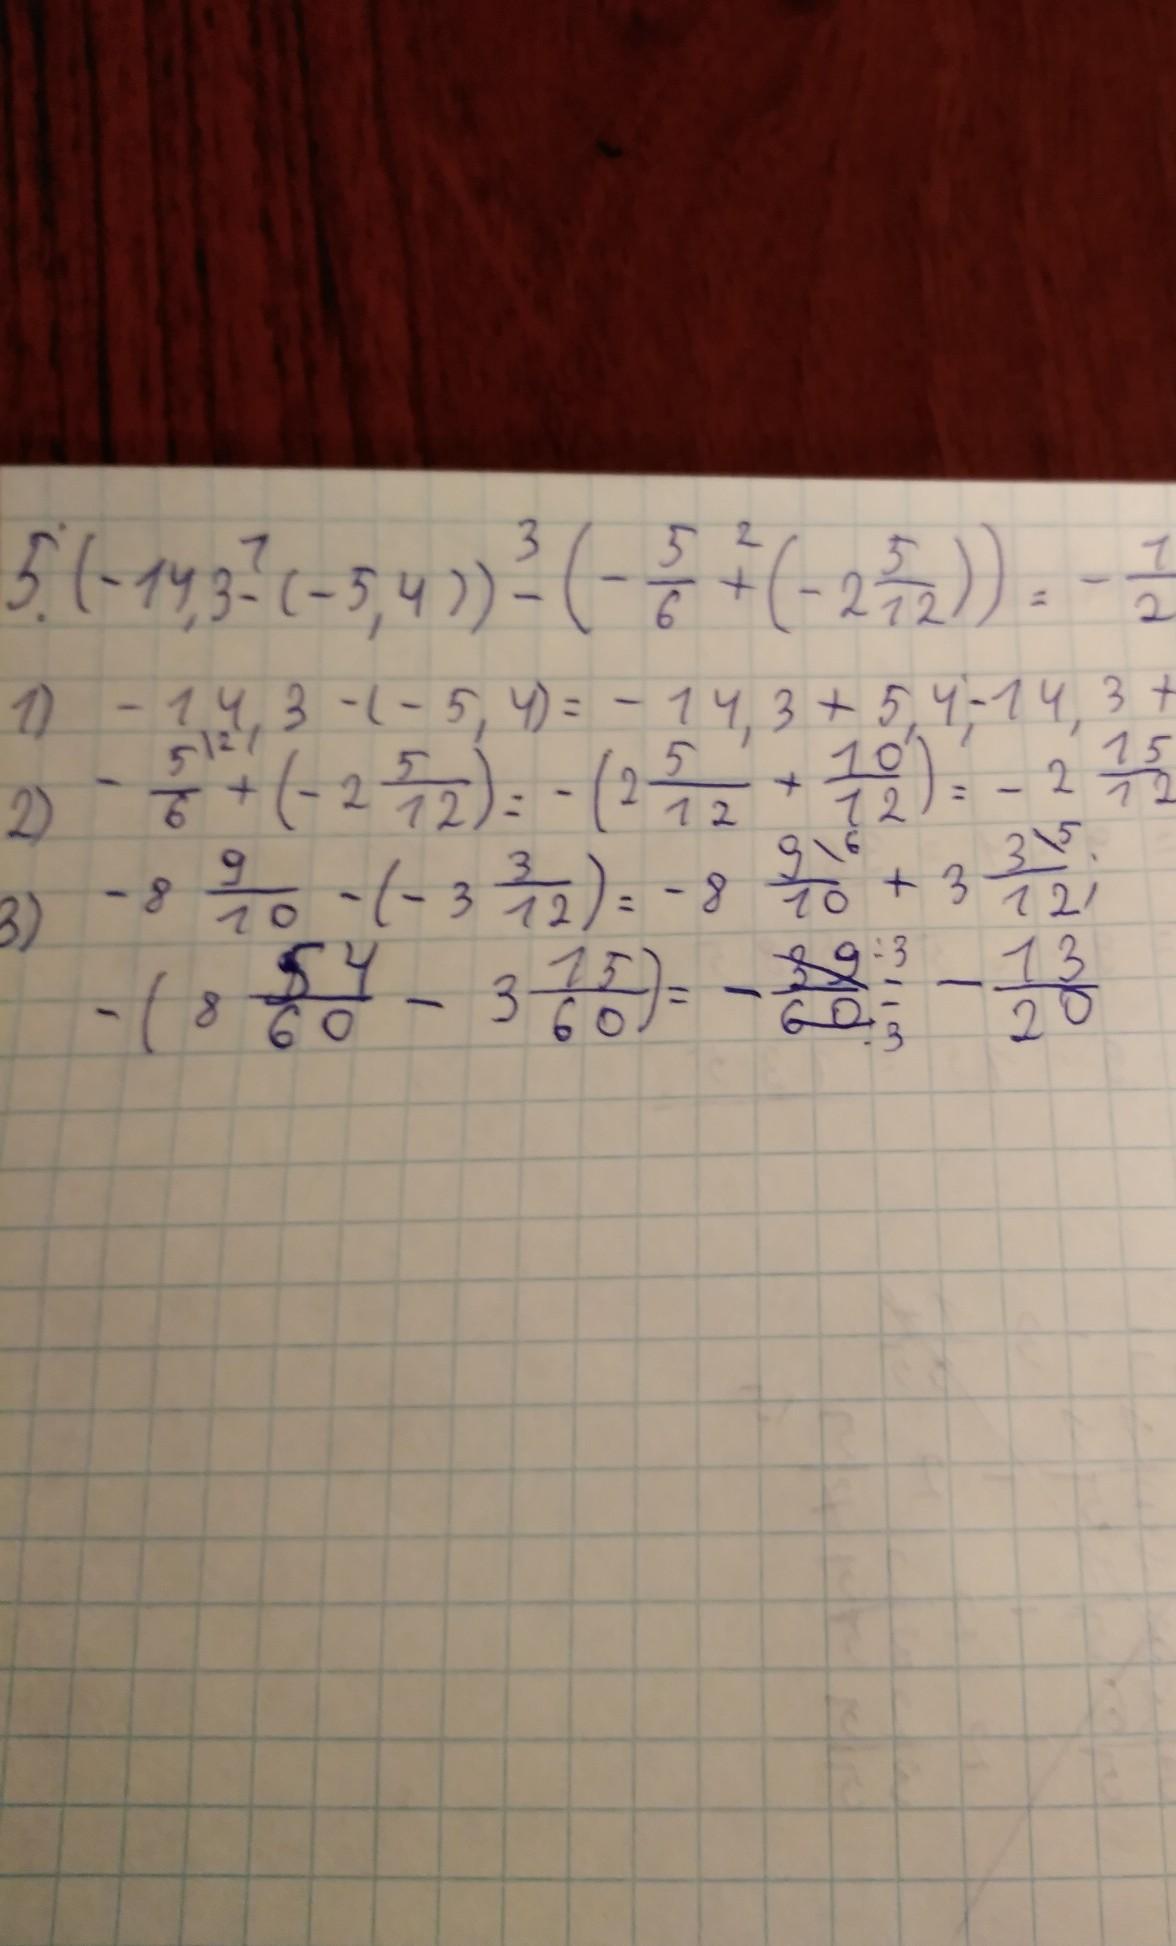 5. (-14,3 - (-5,4)) - (-5/6 + (-2 5/12)) = -1/2
1 3 2
1) -14,3 -(-5,4) = -14,3 + 5,4; -14,3 +
2) -5/6\2 + (-2 5/12) = -(2 5/12 + 10/12) = -2 15/12
3) -8 9/10 -(-3 3/12) = -8 9\6/10 + 3 3\5/12;
-(8 54/60 - 3 15/60) = -39:3/60:3 = -13/20